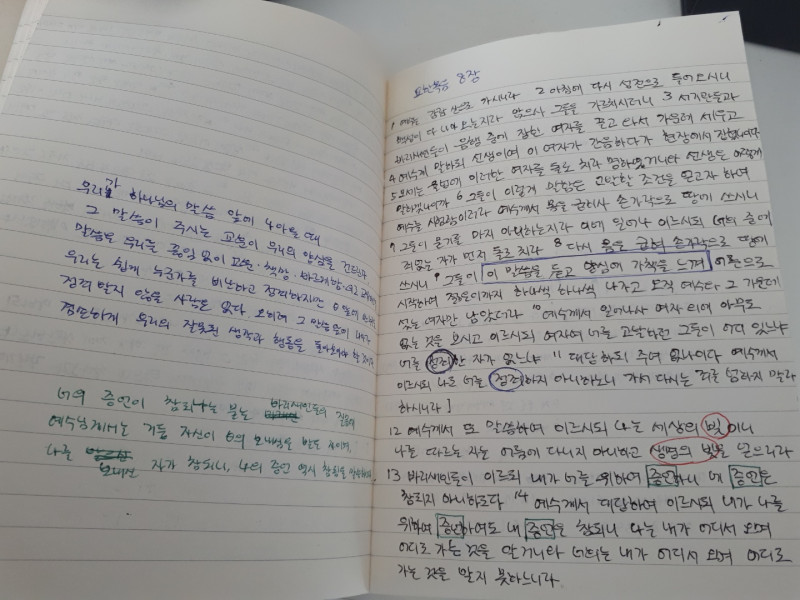 우리가 하나님의 말씀 앞에 나아올 때
그 말씀이 주시는 교훈이 우리의 양심을
말씀은 우리를 끊임없이 교훈·책망·바르게함·
우리는 쉽게 누군가를 비난하고 정죄하지만
정죄받지 않을 사람은 없다 오히려 그 말씀들이
겸손하게 우리의 잘못된 생각과 행동을 돌아보아야
너의 증언이 참되냐는 묻는 바리새인들의 질문에
예수님께서는 거듭 자신이 보내심을 받은 자이며,
나를 보내신 자가 참되니, 나의 증언 역시 참됨을
요한복음 8장
1 예수는 감람 산으로 가시니라 2 아침에 다시 성전으로 들어오시니
백성이 다 나아오는지라 앉으사 그들을 가르치시더니 3 서기관들과
바리새인들이 음행 중에 잡힌 여자를 끌고 와서 가운데 세우고
4 예수께 말하되 선생이여 이 여자가 간음하다가 현장에서 잡혔나이다
5 모세는 율법에 이러한 여자를 돌로 치라 명하였거니와 선생은 어떻게
말하겠나이까 6 그들이 이렇게 말함은 고발할 조건을 얻고자 하여
예수를 시험함이러라 예수께서 몸을 굽히사 손가락으로 땅에 쓰시니
7 그들이 묻기를 마지 아니하는지라 이에 일어나 이르시되 너희 중에
죄 없는 자가 먼저 돌로 치라 8 다시 몸을 굽혀 손가락으로 땅에
쓰시니 9 그들이 이 말씀을 듣고 양심에 가책을 느껴 어른으로
시작하여 젊은이까지 하나씩 하나씩 나가고 오직 예수와 그 가운데
섰는 여자만 남았더라 10 예수께서 일어나사 여자 외에 아무도
없는 것을 보시고 이르시되 여자여 너를 고발하던 그들이 어디 있느냐
너를 정죄한 자가 없느냐 11 대답하되 주여 없나이다 예수께서
이르시되 나도 너를 정죄하지 아니하노니 가서 다시는 죄를 범하지 말라
하시니라]
12 예수께서 또 말씀하여 이르시되 나는 세상의 빛이니
나를 따르는 자는 어둠에 다니지 아니하고 생명의 빛을 얻으리라
13 바리새인들이 이르되 네가 너를 위하여 증언하니 네 증언은
참되지 아니하도다 14 예수께서 대답하여 이르시되 내가 나를
위하여 증언하여도 내 증언은 참되니 나는 내가 어디서 오며
어디로 가는 것을 알거니와 너희는 내가 어디서 오며 어디로
가는 것을 알지 못하느니라.